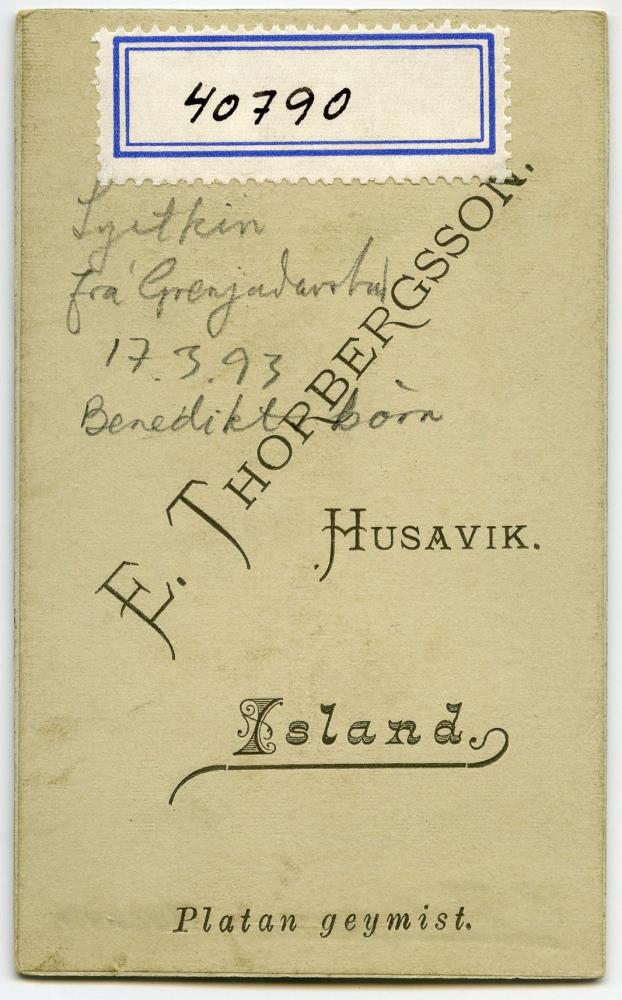 40790
Systkin
frá Grenjaðarstað
17.3.93
Benedikts börn
E. THORBERGSSON.
HUSAVIK.
Island.
Platan geymist.